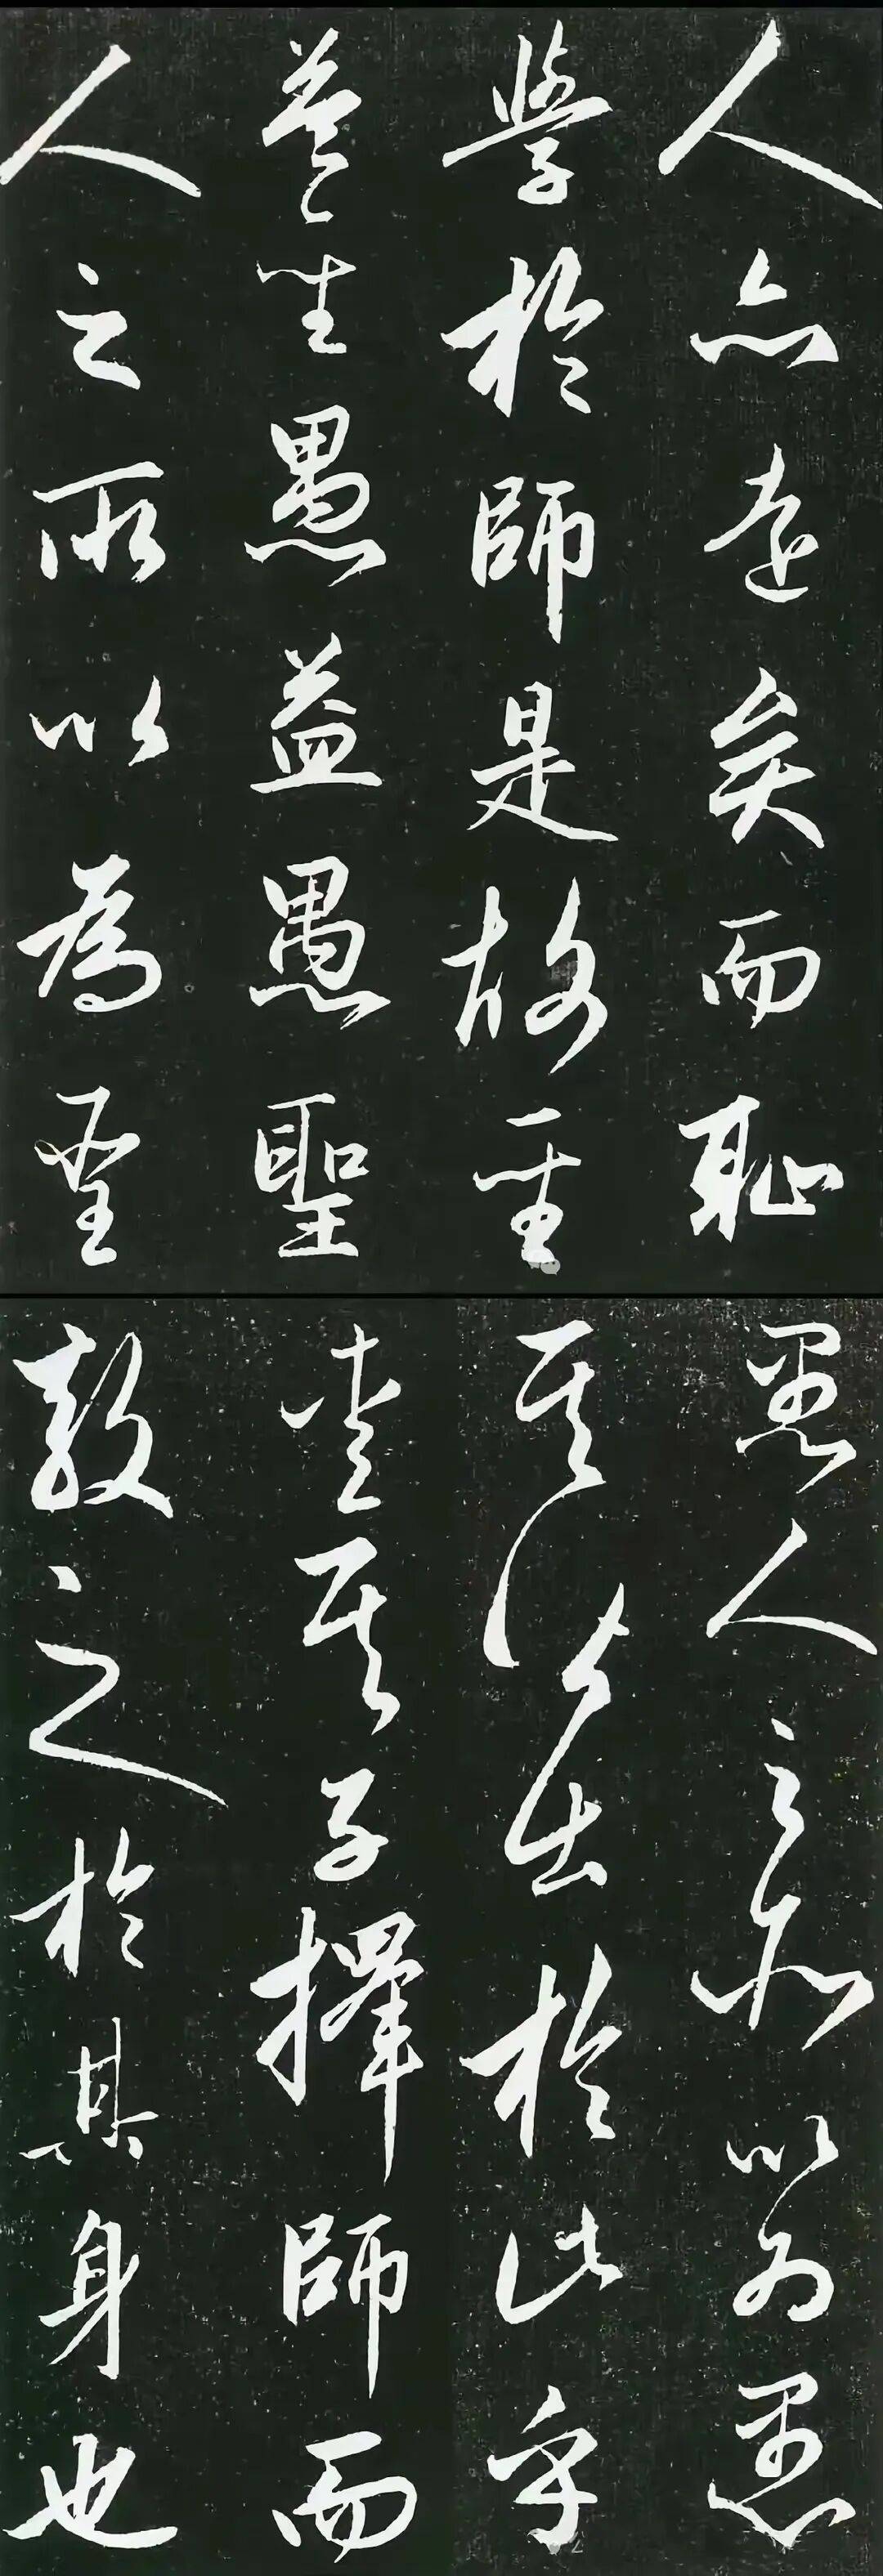 人亦遠矣而恥
學於師是故聖
益聖愚益愚聖
人之所以為聖
愚人之所以為愚
其皆出於此乎
愛其子擇師而
教之於其身也